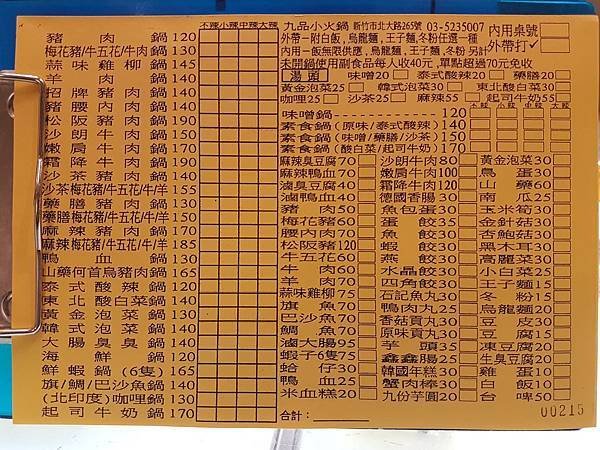 不辣 小辣 中辣 大辣
豬肉鍋 120
梅花豬/牛五花/牛肉鍋 130
蒜味雞柳鍋 145
羊肉鍋 140
招牌豬肉鍋 140
豬腰內肉鍋 140
松阪豬肉鍋 190
沙朗牛肉鍋 150
嫩肩牛肉鍋 170
霜降牛肉鍋 190
沙茶豬肉鍋 140
沙茶梅花豬/牛五花/牛/羊 155
藥膳豬肉鍋 130
藥膳梅花豬/牛五花/牛/羊 150
麻辣豬肉鍋 170
麻辣梅花豬/牛五花/牛/羊 185
鴨血鍋 130
山藥何首烏豬肉鍋 165
泰式酸辣鍋 120
東北酸白菜鍋 140
黃金泡菜鍋 130
韓式泡菜鍋 140
大腸臭臭鍋 140
海鮮鍋 150
鮮蝦鍋(6隻) 165
旗/鯛/巴沙魚鍋 140
(北印度)咖哩鍋 130
起司牛奶鍋 170
九品小火鍋 新竹市北大路265號 03-5235007
外帶一附白飯,烏龍麵,王子麵,冬粉任選一種
內用一飯無限供應,烏龍麵,王子麵,冬粉 另計
內用桌號
外帶打✓
未開鍋使用副食品每人收40元,單點超過70元免收
湯頭 味噌20 泰式酸辣20 藥膳20
黃金泡菜25 韓式泡菜30 東北酸白菜30
咖哩25 沙茶25 麻辣55 起司牛奶55
味噌鍋 120
素食鍋(原味/泰式酸辣) 140
素食鍋(味噌/藥膳/沙茶) 150
素食鍋(酸白菜/起司牛奶) 170
麻辣臭豆腐 70
麻辣鴨血 70
滷臭豆腐 40
滷鴨血 40
豬肉 50
梅花豬 60
腰內肉 70
松阪豬 120
牛五花 60
牛肉 60
羊肉 60
蒜味雞柳 75
旗魚 70
巴沙魚 70
鯛魚 70
滷大腸 95
蝦子6隻 75
蛤仔 30
鴨血 25
米血糕 20
合計:
沙朗牛肉 80
嫩肩牛肉 100
霜降牛肉 120
德國香腸 30
魚包蛋 30
蛋餃 35
魚餃 30
蝦餃 30
燕餃 30
水晶餃 30
四角餃 30
石記魚丸 30
鴨肉丸 25
香菇貢丸 30
原味貢丸 30
芋頭 35
鑫鑫腸 25
韓國年糕 30
蟹肉棒 30
九份芋圓 20
黃金泡菜 30
鳥蛋 30
山藥 60
南瓜 25
玉米筍 30
金針菇 30
杏鮑菇 30
黑木耳 30
高麗菜 30
小白菜 25
王子麵 15
冬粉 15
烏龍麵 20
豆皮 30
豆腐 15
凍豆腐 20
生臭豆腐 20
雞蛋 10
白飯 10
台啤 50
00215